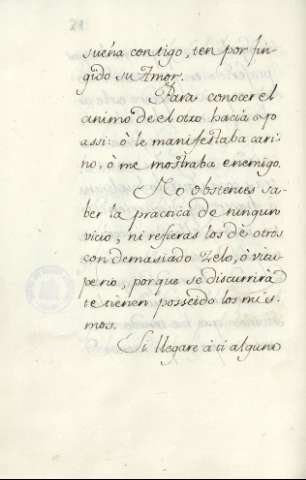 21
sueña contigo, ten por fin-
gido su Amor.
Para conocer el
animo de el otro hacía yo
assi: ò le manifestaba cari-
ño, ò me mostraba enemigo.
No obstentes sa-
ber la practica de ningun
vicio, ni refieras los de otros
con demasiado zelo, ò vitu-
perio, porque se discurrirà
te tienen posseido los mis-
mos.
Si llegare à ti alguno